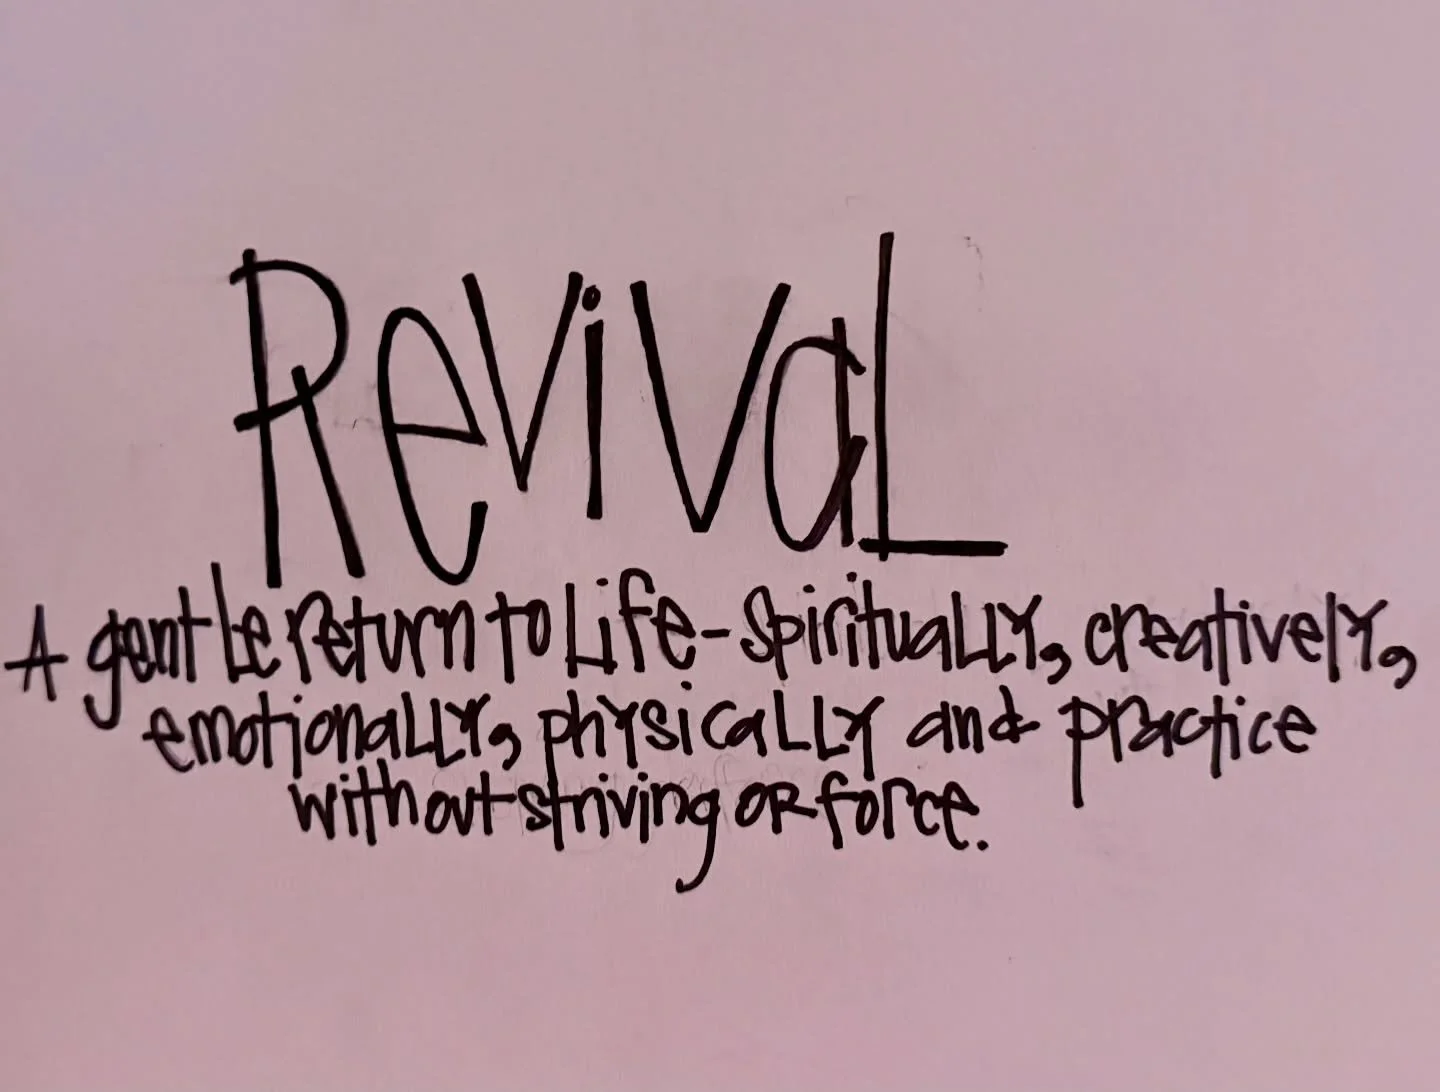 RevivaL
A gentle return to Life - spirituaLLy, creatively,
emotionaLLy, physicaLLy and practice
without striving OR force.